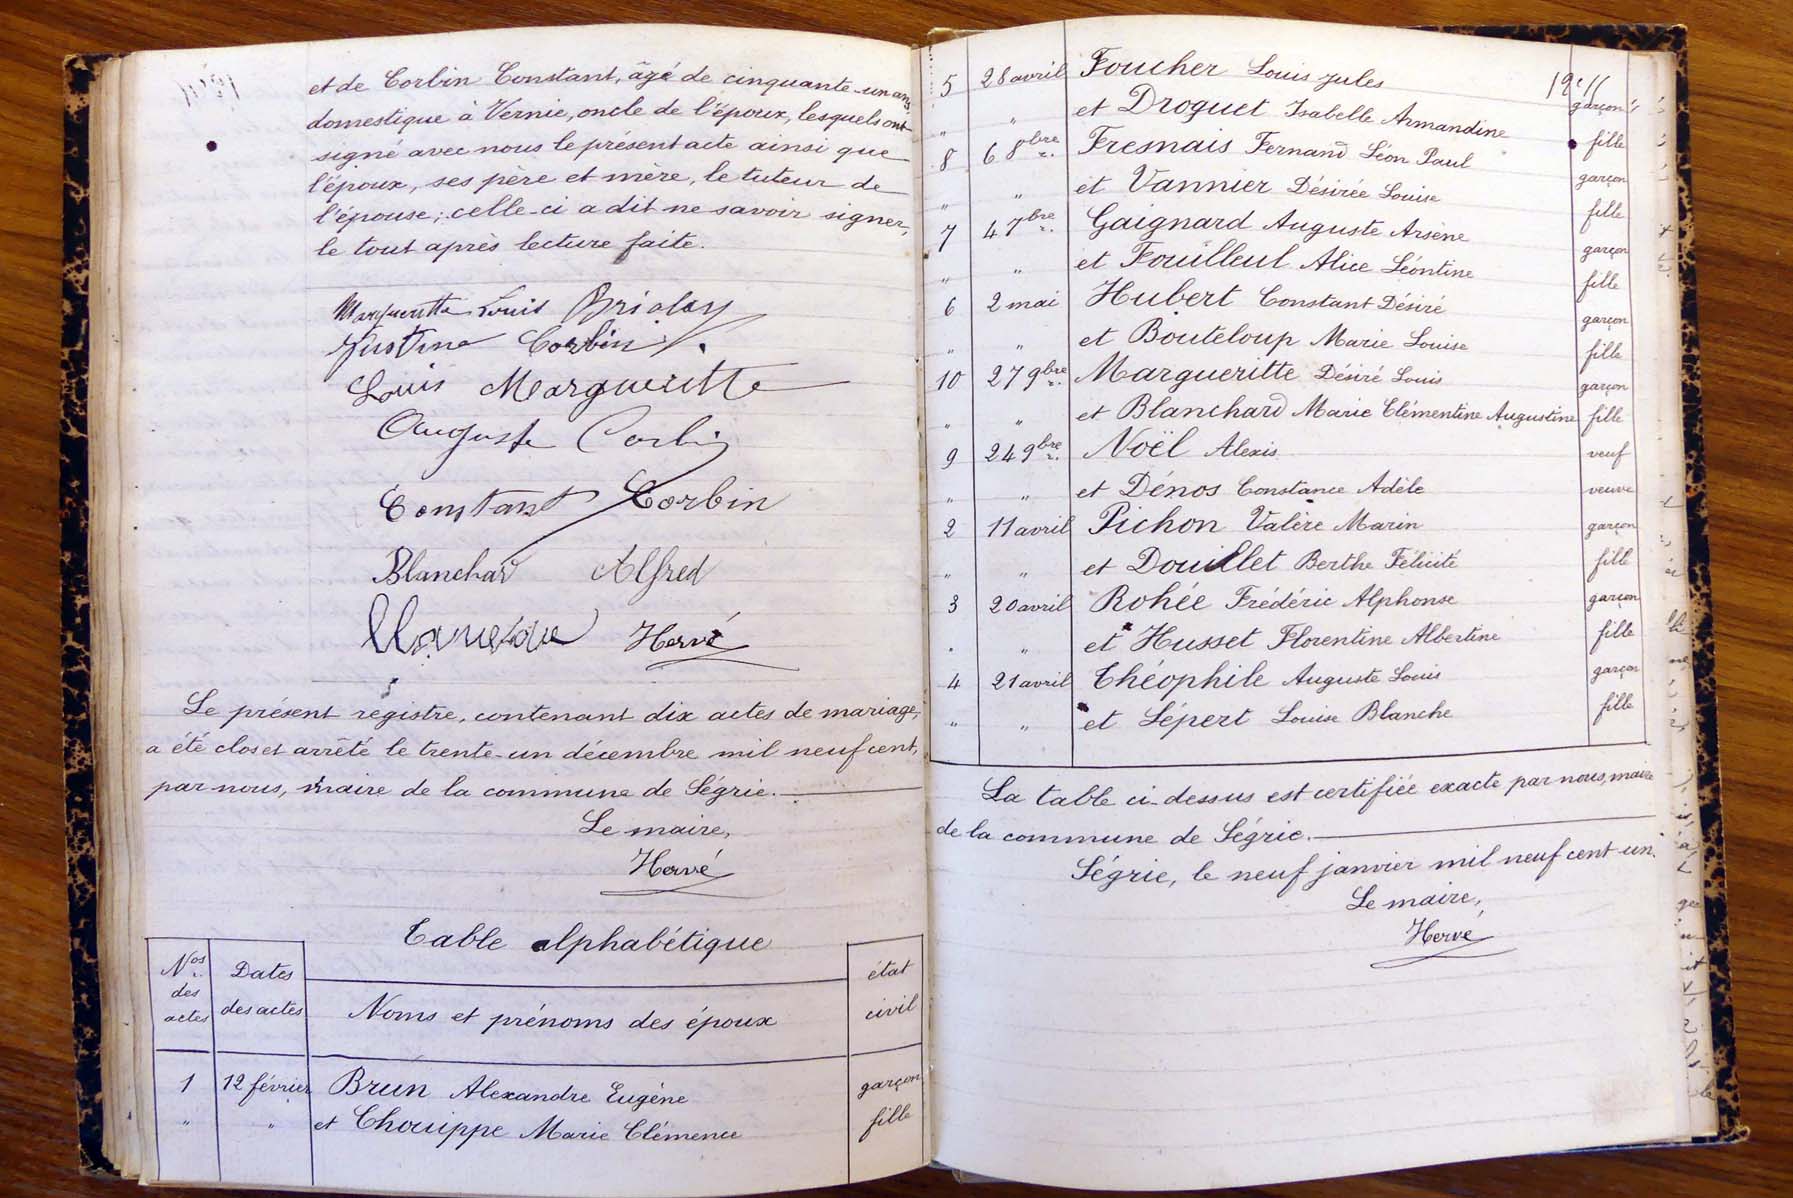 et de Corbin Constant, âgé de cinquante-un ans
domestique à Vernie, oncle de l'époux, lesquels ont
signé avec nous le présent acte ainsi que
l'époux, ses père et mère, le tuteur de
l'épouse; celle-ci a dit ne savoir signer,
le tout après lecture faite.
Margueritte Louis
Justine Corbin
Louis Margueritte
Auguste Corbin
Constant Corbin
Blanchard Alfred
Hervé
Le présent registre, contenant dix actes de mariage,
a été clos et arrêté le trente-un décembre mil neuf cent,
par nous, maire de la commune de Ségrie.
Le maire,
Hervé
Table alphabétique
Nos des actes | Dates des actes | Noms et prénoms des époux | état civil
1 12 février Brun Alexandre Eugène garçon
" " et Chouippe Marie Clémence fille
5 28 avril Foucher Louis Jules garçon
" " et Droguet Isabelle Armandine fille
8 6 8bre Fresnais Fernand Léon Paul garçon
" " et Vannier Désirée Louise fille
7 4 7bre Gaignard Auguste Arsène garçon
" " et Fouilleul Alice Léontine fille
6 2 mai Hubert Constant Désiré garçon
" " et Bouteloup Marie Louise fille
10 27 9bre Margueritte Désiré Louis garçon
" " et Blanchard Marie Clémentine Augustine fille
9 24 9bre Noël Alexis veuf
" " et Dénos Constance Adèle veuve
2 11 avril Pichon Valère Marin garçon
" " et Douillet Berthe Félicité fille
3 20 avril Rohée Frédéric Alphonse garçon
" " et Husset Florentine Albertine fille
4 21 avril Théophile Auguste Louis garçon
" " et Lépert Louise Blanche fille
La table ci-dessus est certifiée exacte par nous, maire
de la commune de Ségrie.
Ségrie, le neuf janvier mil neuf cent un.
Le maire,
Hervé